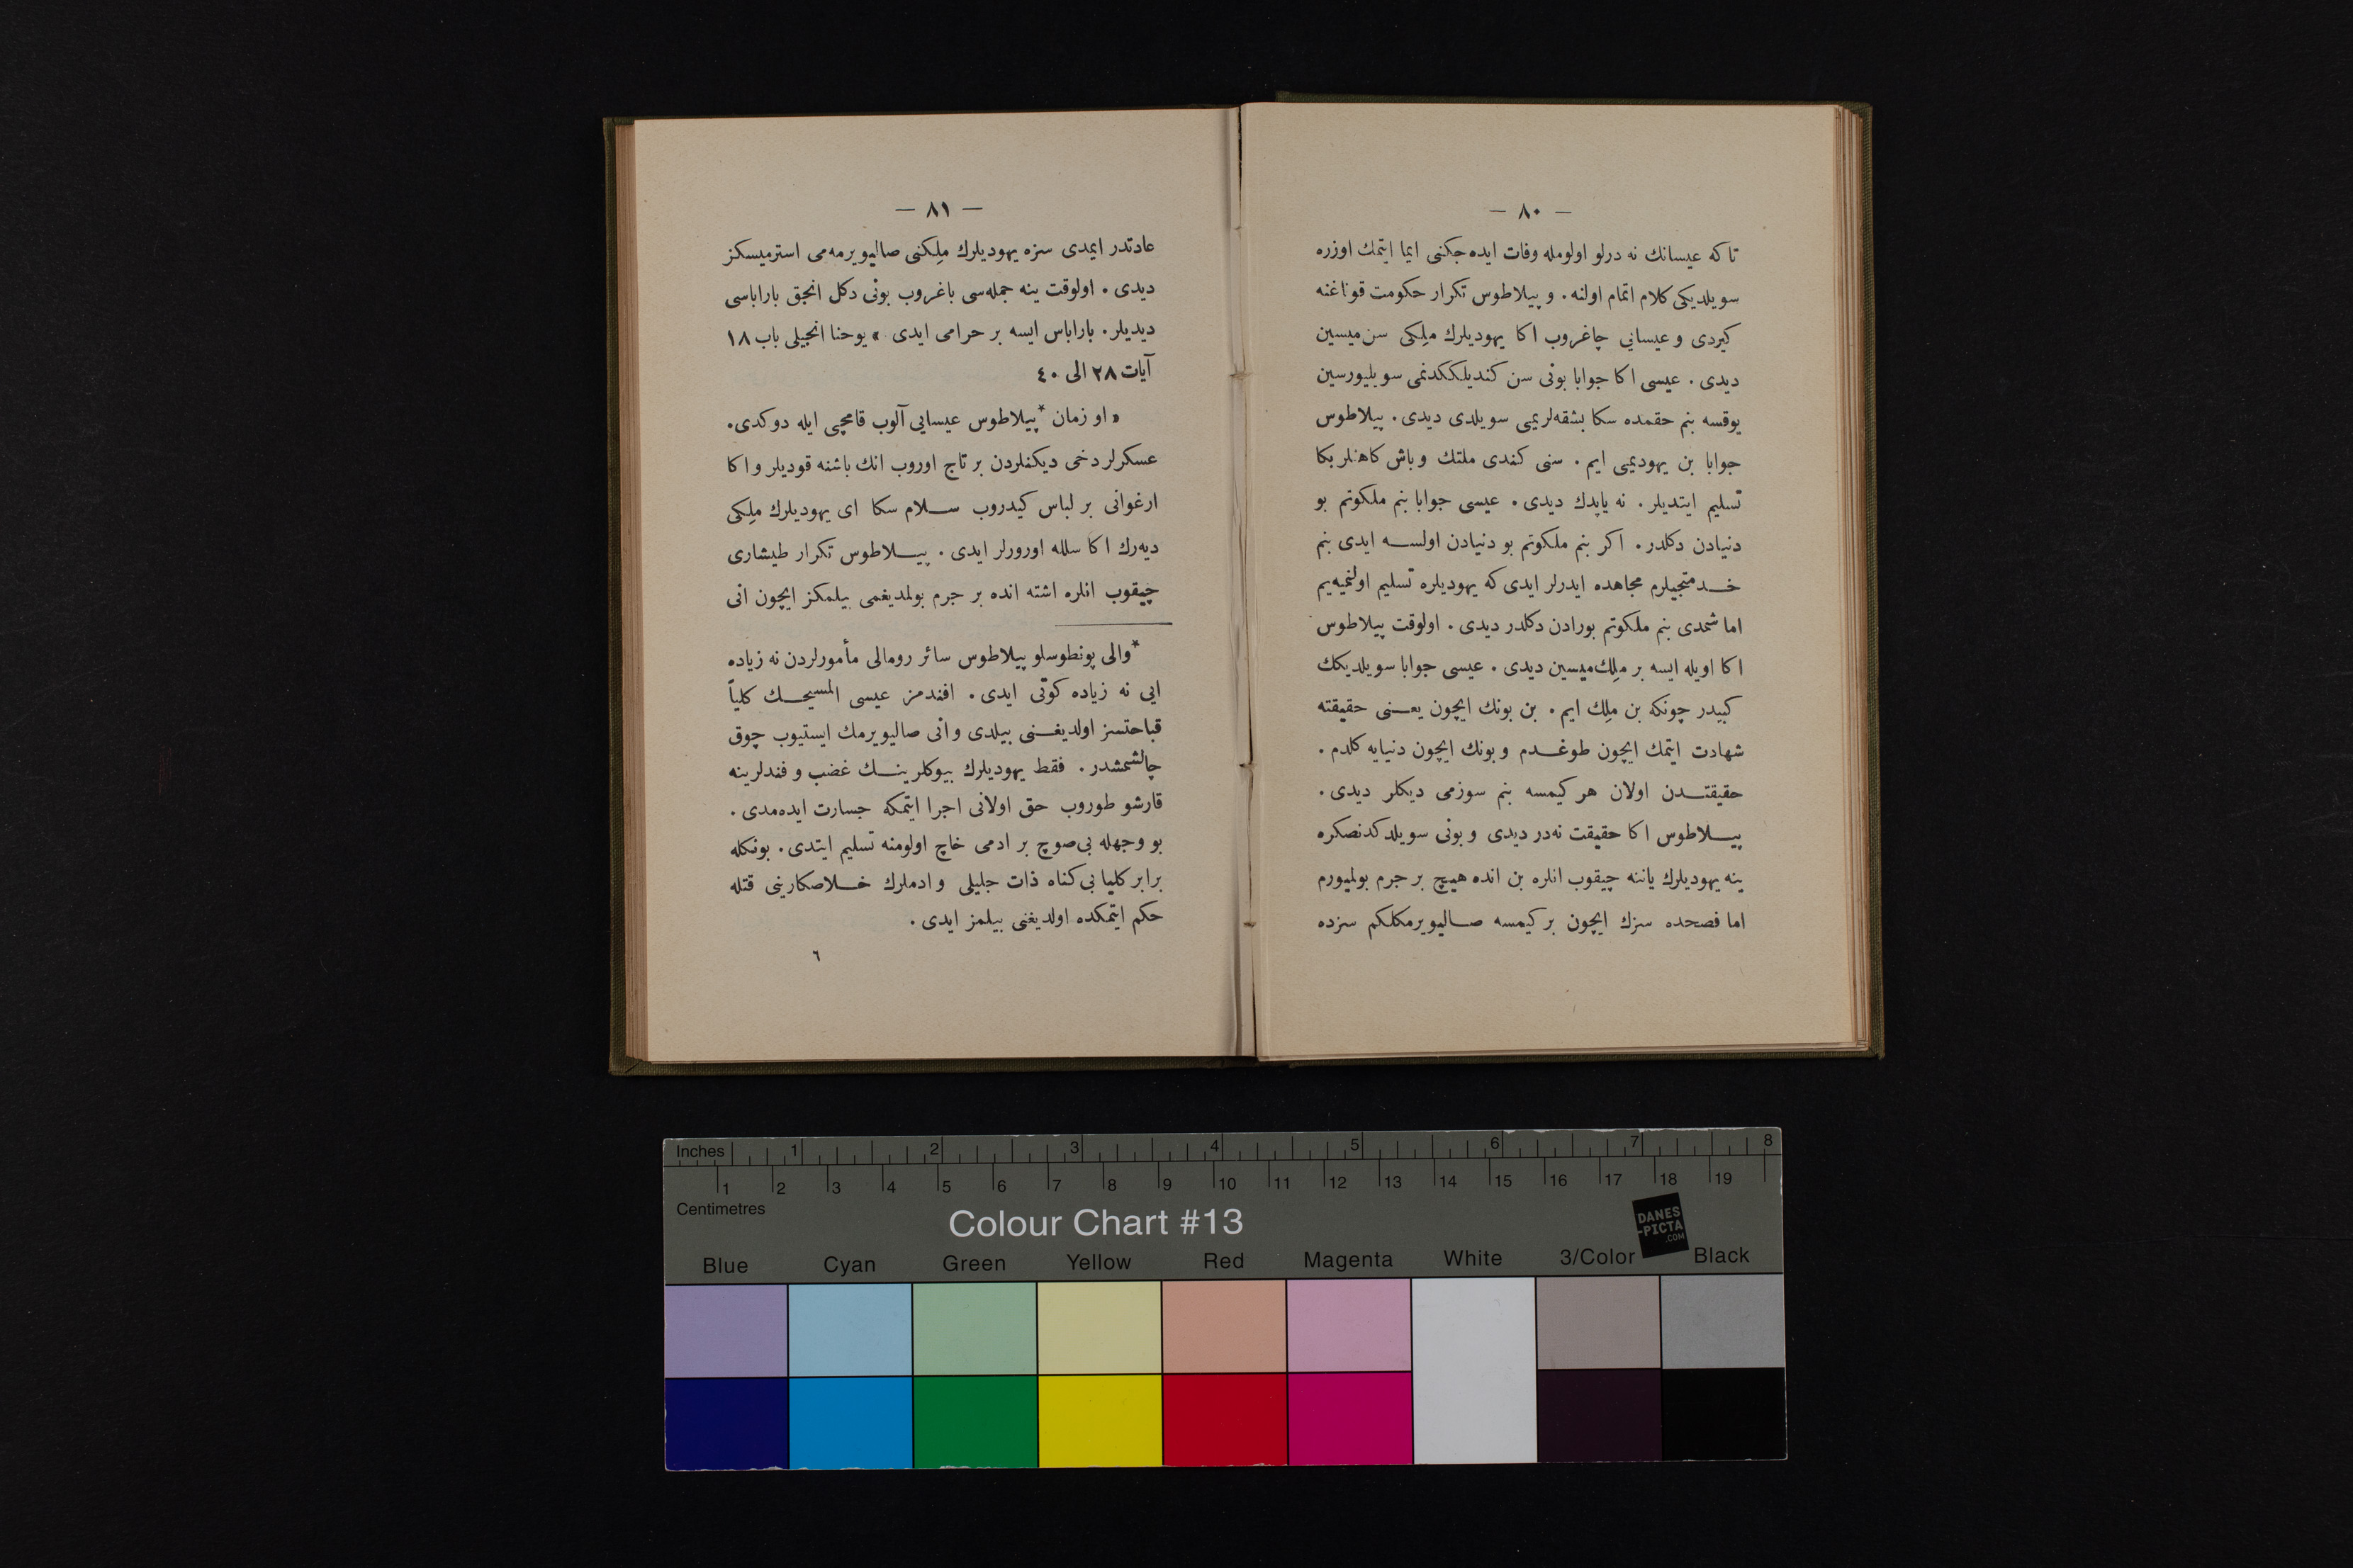 — ٨٠ —
تاكه عيسانك نه درلو اولومله وفات ايده‌جكنى ايما ايتمك اوزره
سويلديكى كلام اتمام اولنه. و پيلاطوس تكرار حكومت قوناغنه
كيردى و عيسايى چاغروب اكا يهوديلرك ملِكى سن‌ميسين
ديدى. عيسى اكا جوابا بونى سن كنديلككدنمى سويليورسين
يوقسه بنم حقمده سكا بشقه‌لريمى سويلدى ديدى. پيلاطوس
جوابا بن يهوديمى ايم. سنى كندى ملتك و باش كاهنلر بكا
تسليم ايتديلر. نه ياپدك ديدى. عيسى جوابا بنم ملكوتم بو
دنيادن دكلدر. اكر بنم ملكوتم بو دنيادن اولسه ايدى بنم
خدمتجيلرم مجاهده ايدرلر ايدى كه يهوديلره تسليم اولنميه‌يم
اما شمدى بنم ملكوتم بورادن دكلدر ديدى. اولوقت پيلاطوس
اكا اويله ايسه بر ملِك‌ميسين ديدى. عيسى جوابا سويلديكك
كبيدر چونكه بن ملِك ايم. بن بونك ايچون يعنى حقيقته
شهادت ايتمك ايچون طوغدم و بونك ايچون دنيايه كلدم.
حقيقتدن اولان هر كيمسه بنم سوزمى ديكلر ديدى.
پيلاطوس اكا حقيقت نه‌در ديدى و بونى سويلدكدنصكره
ينه يهوديلرك ياننه چيقوب انلره بن انده هيچ بر جرم بولميورم
اما فصحده سزك ايچون بر كيمسه صاليويرمكلكم سزده
— ٨١ —
عادتدر ايمدى سزه يهوديلرك ملِكنى صاليويرمه‌مى استرميسكز
ديدى. اولوقت ينه جمله‌سى باغروب بونى دكل انجق باراباسى
ديديلر. باراباس ايسه بر حرامى ايدى» يوحنا انجيلى باب ١٨
آيات ٢٨ الى ٤٠
«او زمان *پيلاطوس عيسايى آلوب قامچى ايله دوكدى.
عسكرلر دخى ديكنلردن بر تاج اوروب انك باشنه قوديلر و اكا
ارغوانى بر لباس كيدروب سلام سكا اى يهوديلرك ملِكى
ديه‌رك اكا سلله اورورلر ايدى. پيلاطوس تكرار طيشارى
چيقوب انلره اشته انده بر جرم بولمديغمى بيلمكز ايچون انى
*والى پونطوسلو پيلاطوس سائر رومالى مأمورلردن نه زياده
ايى نه زياده كوتى ايدى. افندمز عيسى المسيحك كلياً
قباحتسز اولديغنى بيلدى و انى صاليويرمك ايستيوب چوق
چالشمشدر. فقط يهوديلرك بيوكلرينك غضب و فندلرينه
قارشو طوروب حق اولانى اجرا ايتمكه جسارت ايده‌مدى.
بو وجهله بى‌صوچ بر ادمى خاچ اولومنه تسليم ايتدى. بونكله
برابر كليا بى‌كناه ذات جليلى و ادملرك خلاصكارينى قتله
حكم ايتمكده اولديغنى بيلمز ايدى.
٦
Inches 1 2 3 4 5 6 7 8
1 2 3 4 5 6 7 8 9 10 11 12 13 14 15 16 17 18 19
Centimetres
Colour Chart #13
DANES
-PICTA
.COM
Blue Cyan Green Yellow Red Magenta White 3/Color Black